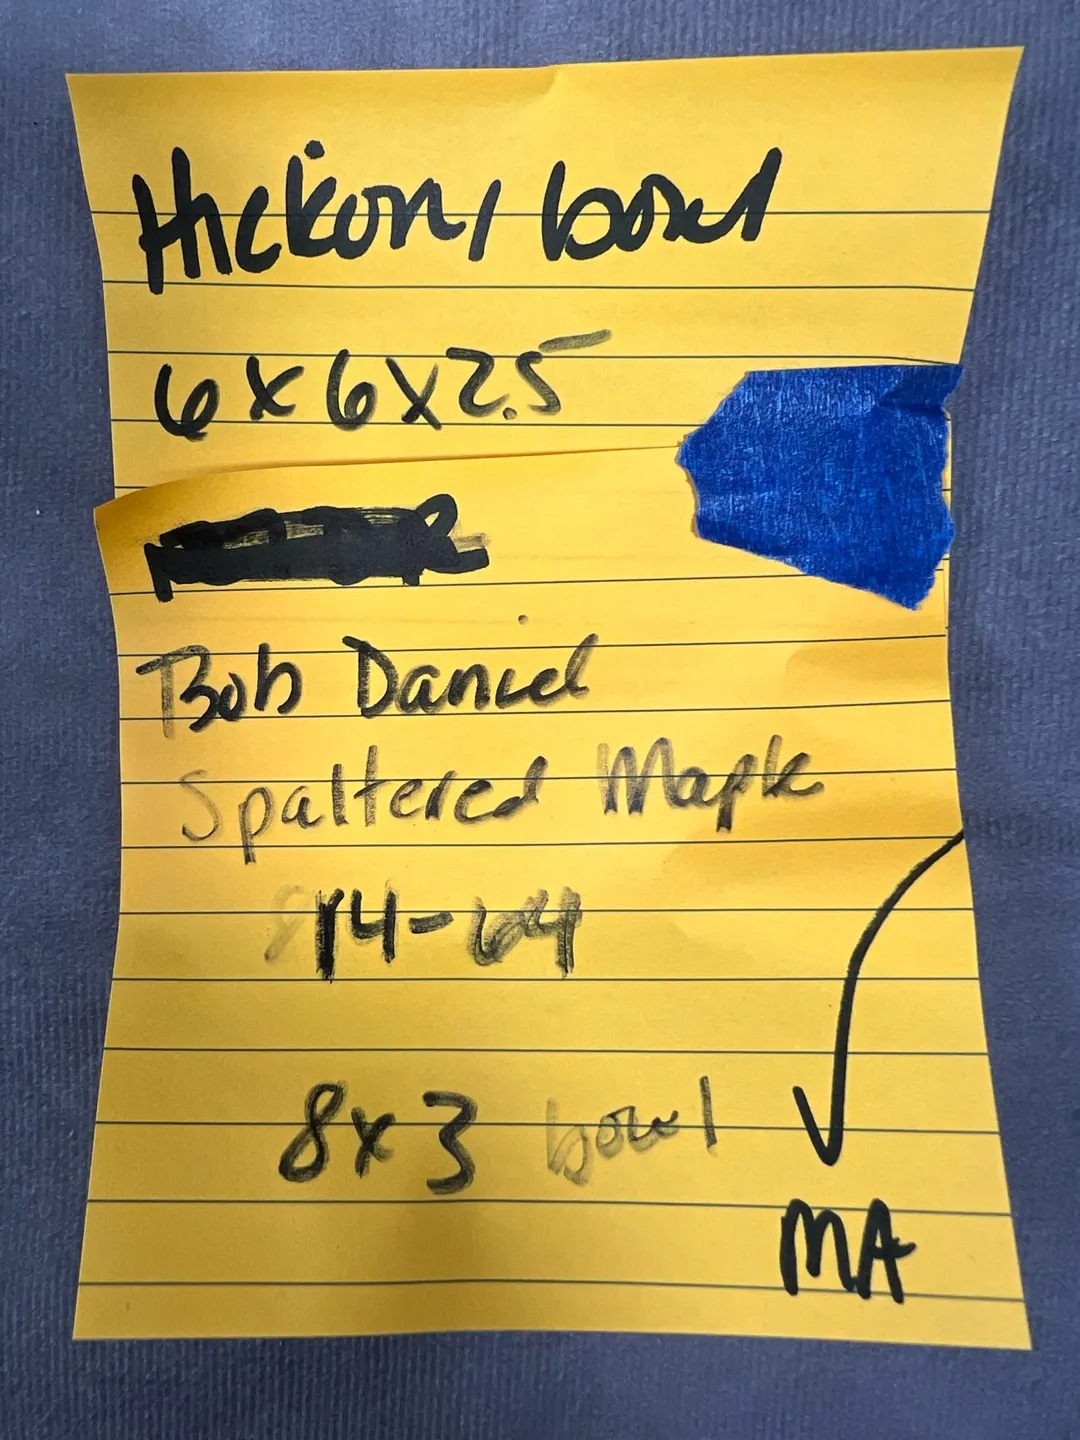 Hickory bowl
6 x 6 x 2.5
Bob Daniel
Spaltered Maple
14-64
8x3 bowl
MA